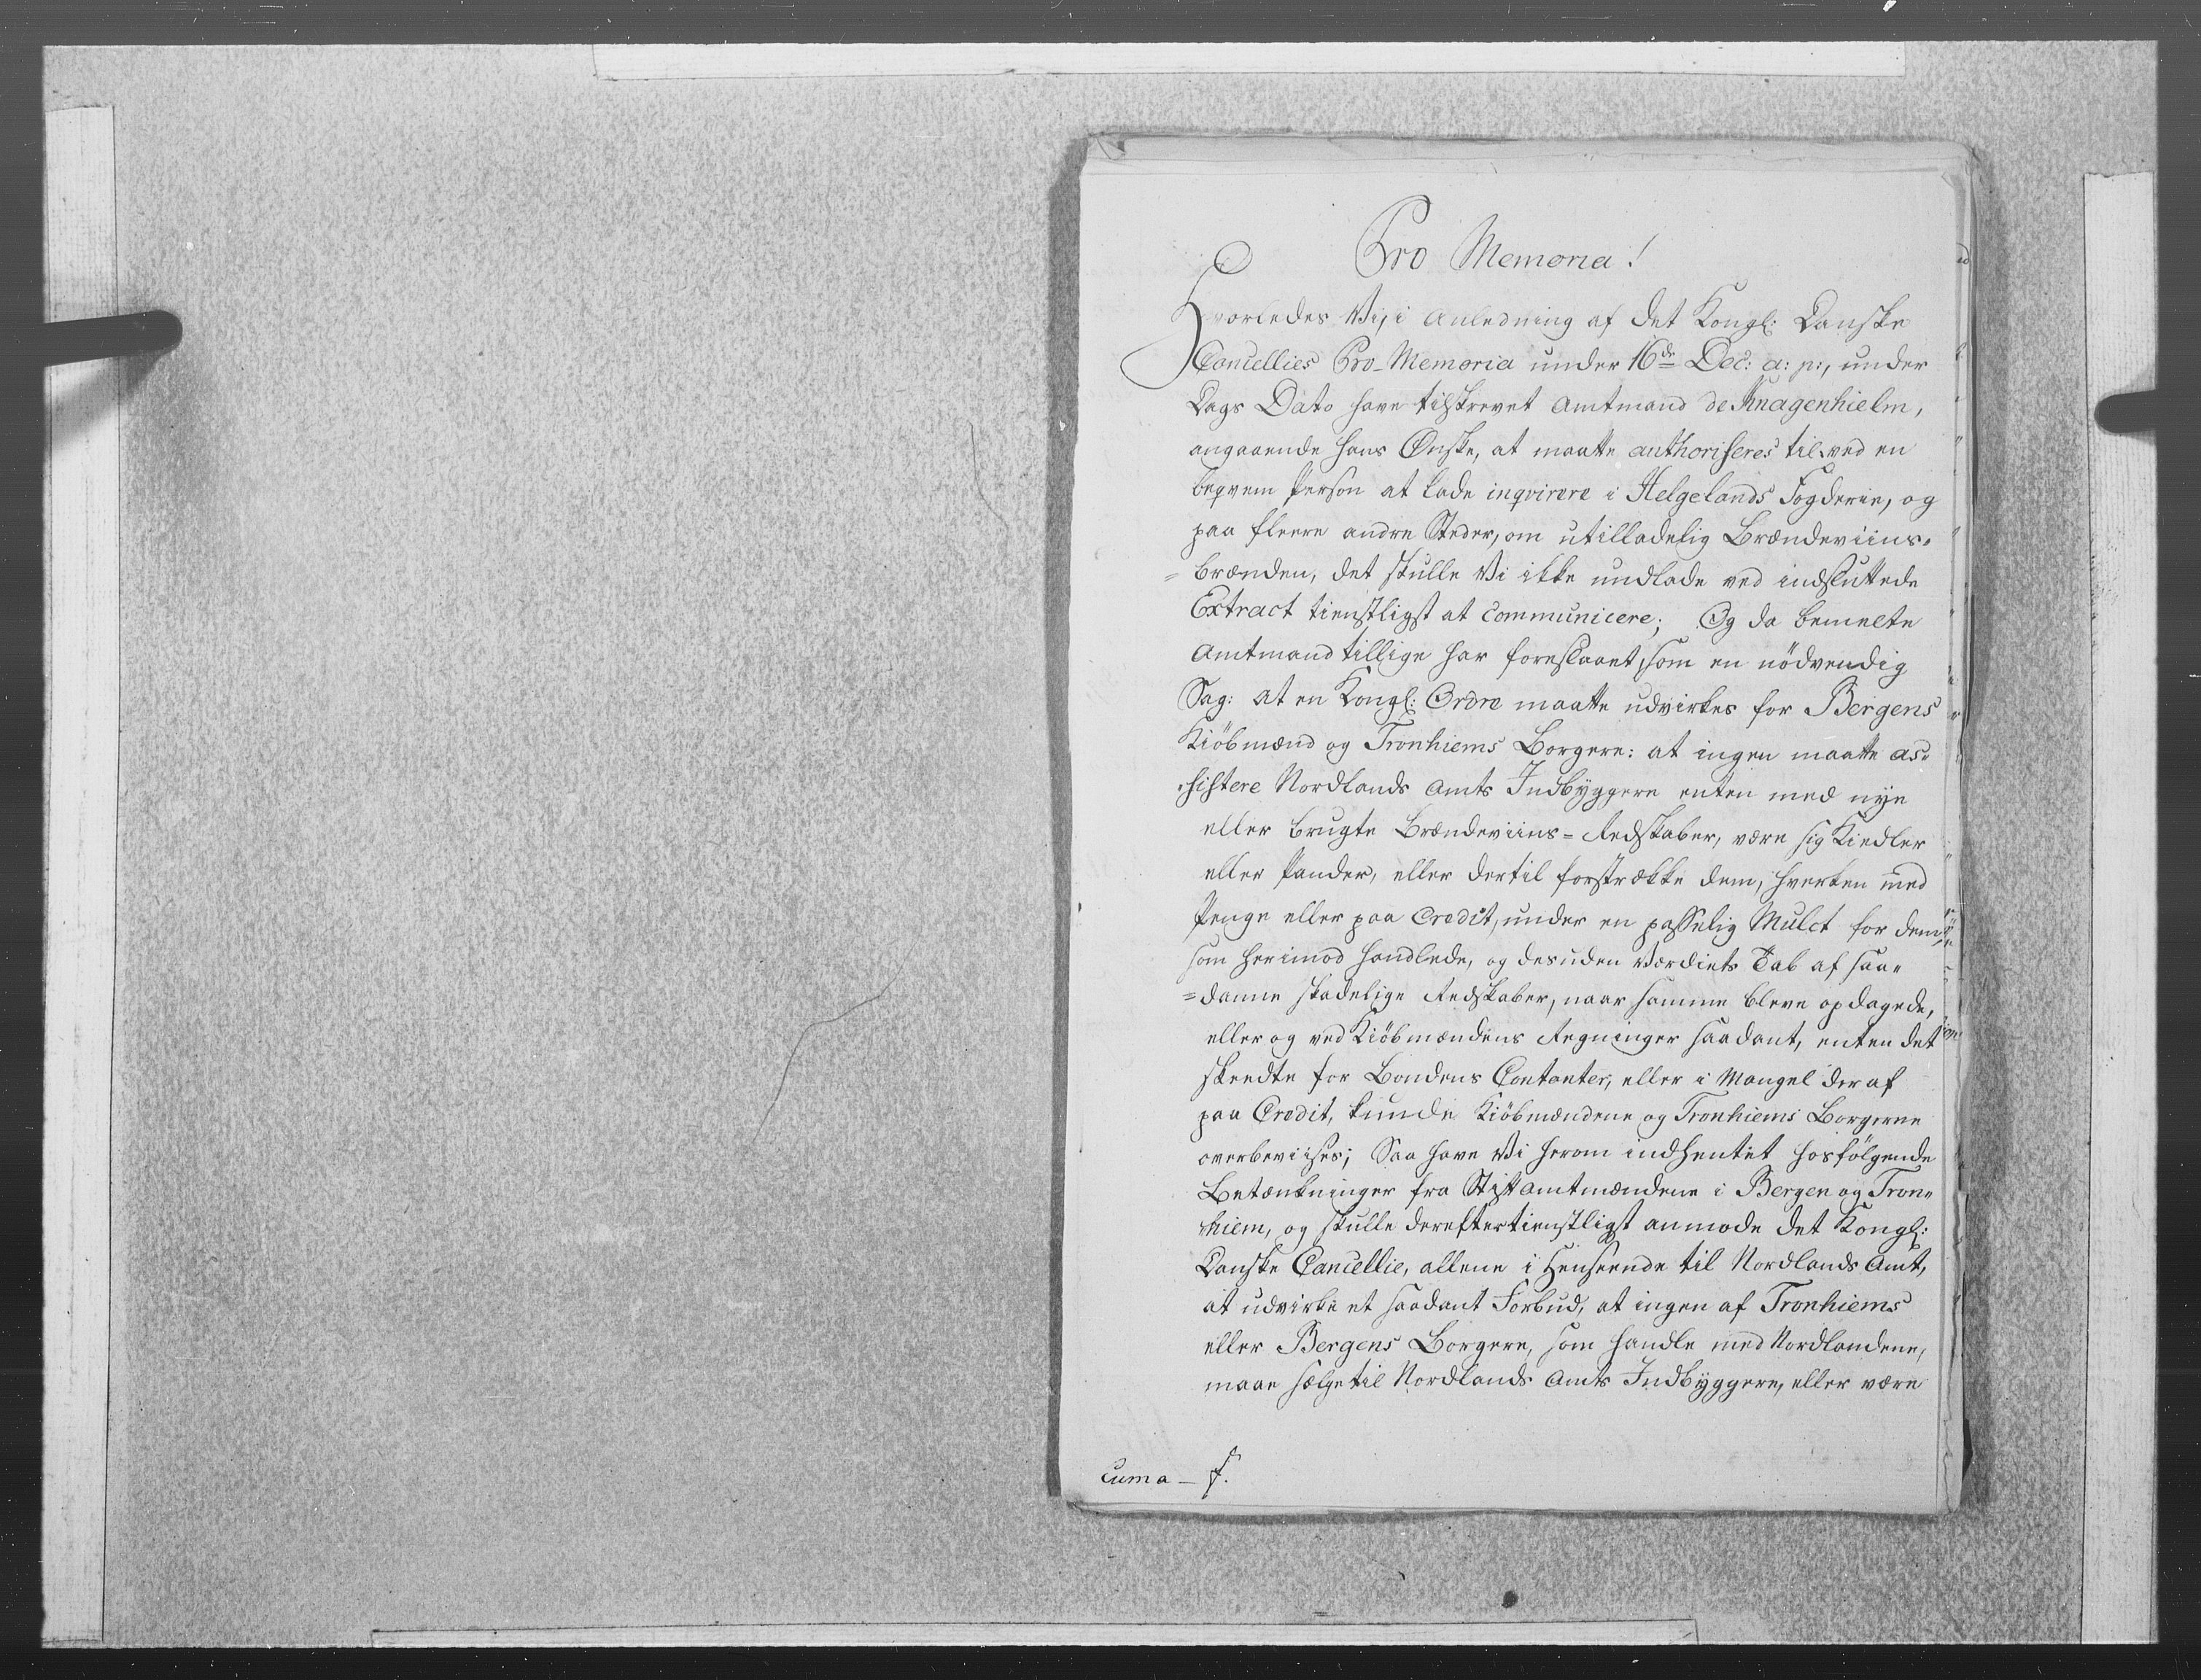 Pro Memoria!
Hvorledes Vi, i Anledning af det Kongl: Danske
Cancellies Pro-Memoria under 16de Dec: a: p:, under
Dags Dato have tilskrevet Amtmand de Knagenhielm,
angaaende hans Ønske, at maatte authoriseres til ved en
beqvem Person at lade inqvirere i Helgelands Fogderie, og
paa fleere andre Steder, om utilladelig Brændeviins-
=brænden, det skulle Vi ikke undlade ved indsluttede
Extract tienstligst at communicere; Og da bemelte
Amtmand tillige har foreslaaet, som en nödvendig
Sag: at en Kongl: Ordre maatte udvirkes for Bergens
Kiöbmænd og Tronhiems Borgere: at ingen maatte as=
=sistere Nordlands Amts Indbyggere enten med nye
eller brugte Brændeviins=Redskaber, være sig Kiedler
eller Pander, eller dertil forstrække dem, hverken med
Penge eller paa Credit, under en passelig Mulct for dem,
som herimod handlede, og desuden Værdiets Tab af saa=
=danne skadelige Redskaber, naar samme bleve opdagede,
eller og ved Kiöbmændens Regninger saadant, enten det
skeedte for Bondens Contanter, eller i Mangel deraf
paa Credit, kunde Kiöbmændene og Tronhiems Borgerne
overbeviises; Saa have Vi herom indhentet hosfölgende
Betænkninger fra Stiftamtmændene i Bergen og Tron=
hiem, og skulle dereftertienstligst anmode det Kongl:
Danske Cancellie, allene i Henseende til Nordlands Amt,
at udvirke et saadant Forbud, at ingen af Tronhiems
eller Bergens Borgere, som handle med Nordlandene,
maae sælge til Nordlands Amts Indbyggere, eller være
cum a – f.